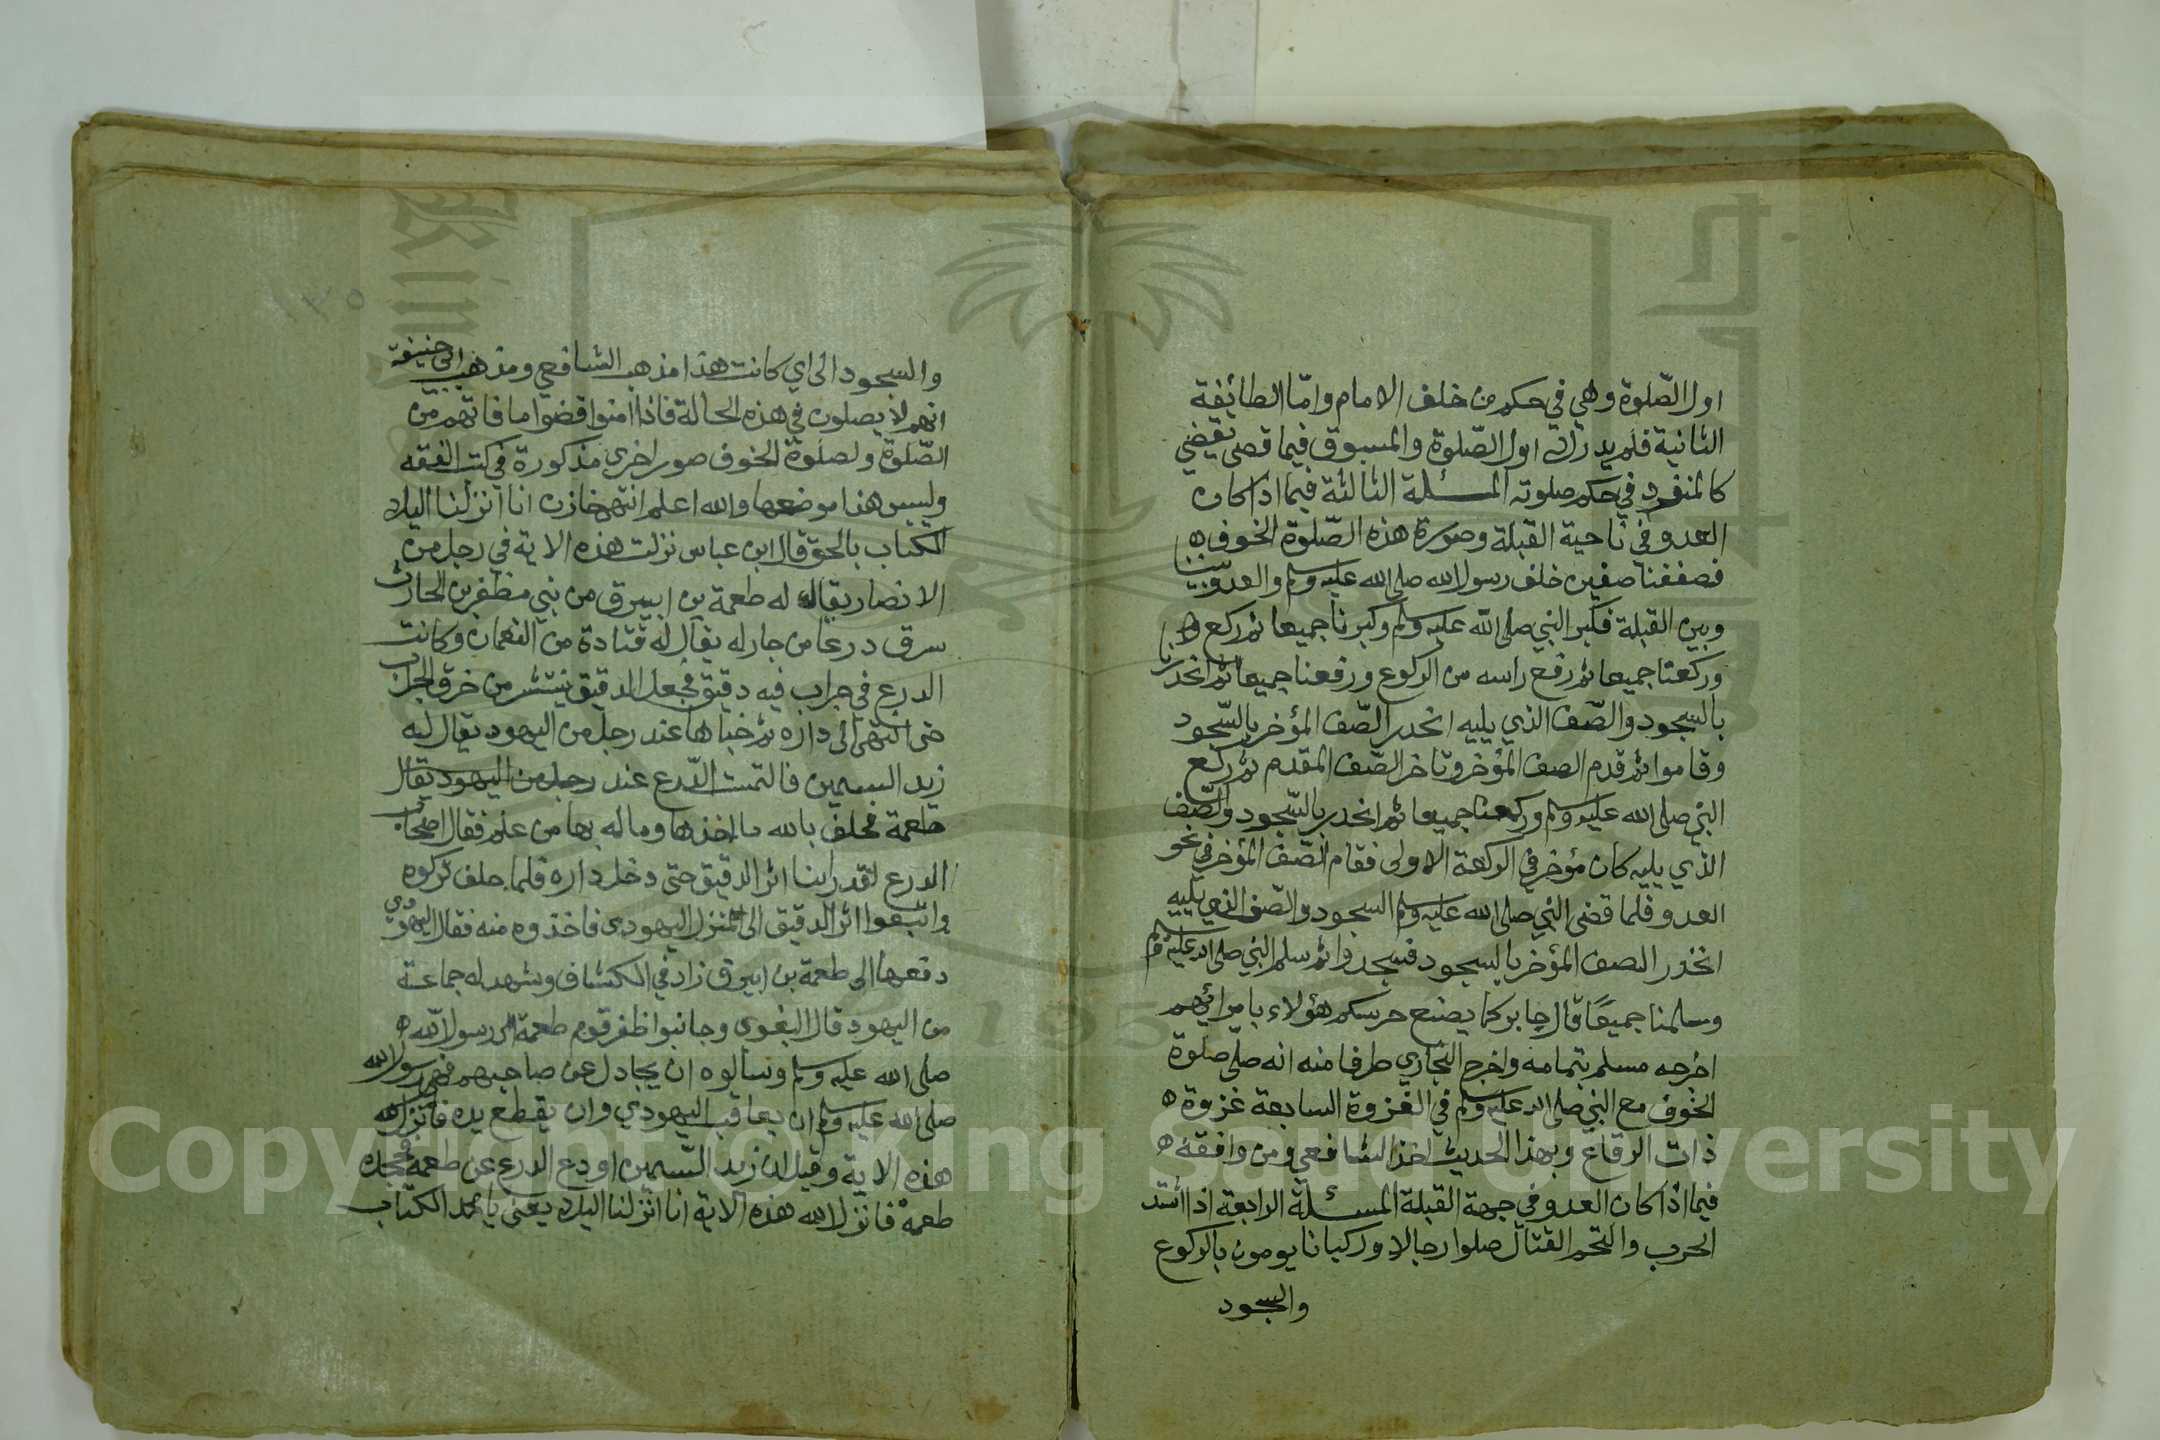 اول الصّلوة وهي في حكم من خلف الامام وامّا الطائفة
الثانية فلم يدرك اول الصّلوة والمسبوق فيما قضى يقضي
كالمنفرد في حكم صلوته المسئلة الثالثة فيما اذا كان
العدو في ناحية القبلة وصورة هذه الصّلوة الخوف ه
فصففنا صفين خلف رسول الله صلى الله عليه وسلم والعدو بيننا
وبين القبلة فكبر النبي صلى الله عليه وسلم وكبرنا جميعا ثم ركع
وركعنا جميعا ثم رفع راسه من الركوع ورفعنا جميعا ثم انحدرنا
بالسجود والصّف الذي يليه انحدر الصّف المؤخر بالسّجود
وقاموا ثم قدم الصف المؤخر وتاخر الصّف المقدم ثم ركع
النبي صلى الله عليه وسلم وركعنا جميعا ثم انحدر بالسّجود والصّف
الذي يليه كان مؤخر في الركعة الاولى فقام الصّف المؤخر في نحو
العدو فلما قضى النبي صلى الله عليه وسلم السجود والصّف الذي يليه
انحدر الصف المؤخر بالسجود فسجدوا ثم سلم النبي صلى الله عليه وسلم
وسلمنا جميعًا قال جابر كما يصنع حرسكم هؤلاء بامرائهم
اخرجه مسلم بتمامه واخرج البخاري طرفا منه انه صلى صلوة
الخوف مع النبي صلى الله عليه وسلم في الغزوة السابعة غزوة ه
ذات الرقاع وبهذا الحديث اخذ الشافعي ومن وافقه ه
فيما اذا كان العدو في جهة القبلة المسئلة الرابعة اذا اشتد
الحرب والتحم القتال صلوا رجالا وركبانا يومون بالركوع
والسجود
والسجود الى اي كانت هذا مذهب الشافعي ومذهب ابي حنيفة
انهم لا يصلون في هذه الحالة فاذا امنوا قضوا ما فاتهم من
الصّلوة ولصلوة الخوف صور اخرى مذكورة في كتب الفقه
وليس هذا موضعها والله اعلم انتهى خازن انا انزلنا اليك
الكتاب بالحق قال ابن عباس نزلت هذه الاية في رجل من
الانصار يقال له طعمة بن ابيرق من بني مظفر بن الحارث
سرق درعا من جار له يقال له قتادة من النعمان وكانت
الدرع في جراب فيه دقيق فجعل الدقيق ينتشر من خرق الجراب
حتى انتهى الى داره ثم خباها عند رجل من اليهود يقال له
زيد السمين فالتمست الدّرع عند رجل من اليهود يقال
طعمة فحلف بالله ما اخذها وما له بها من علم فقال اصحاب
الدرع لقد راينا اثر الدقيق حتى دخل داره فلما حلف تركوه
واتبعوا اثر الدقيق الى المنزل اليهودى فاخذوه منه فقال اليهودي
دفعها الى طعمة بن ابيرق زاد في الكشاف وشهد له جماعة
من اليهود قال البغوى وجا بنوا ظفر قوم طعمة الى رسول الله ه
صلى الله عليه وسلم وسالوه ان يجادل عن صاحبهم فهم رسول الله
صلى الله عليه وسلم ان يعاقب اليهودي وان يقطع يده فانزل الله
هذه الاية وقيل ان زيد السّمين اودع الدرع عن طعمة فجحده
طعمة فانزل الله هذه الاية انا انزلنا اليك يعني يا محمد الكتاب
Copyright © King Saud University